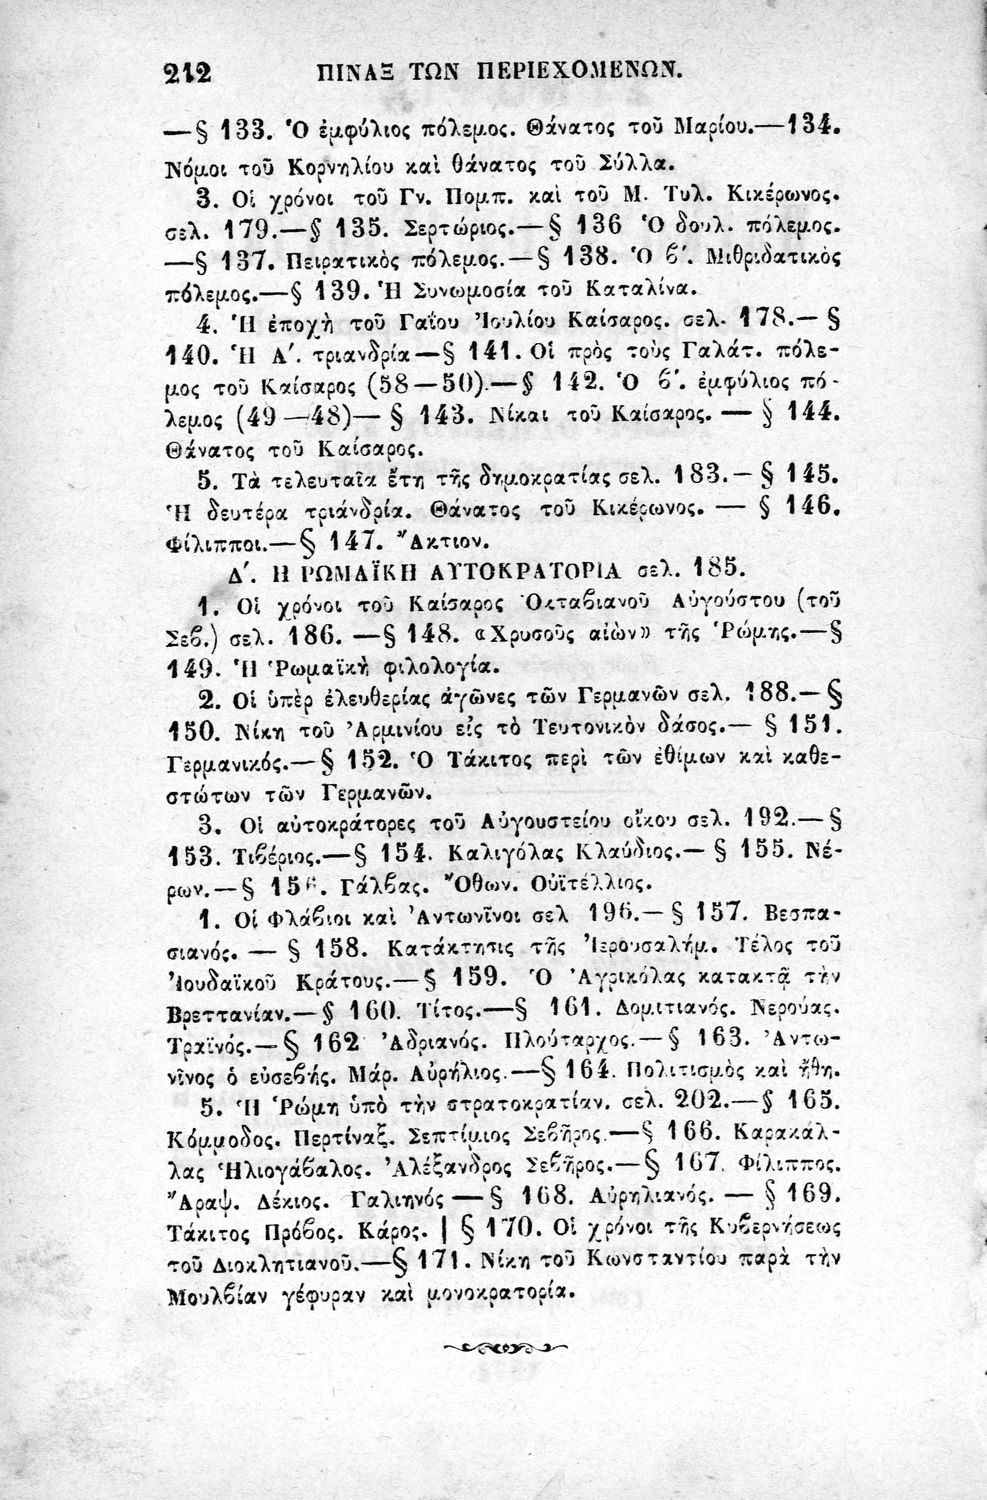 212 ΠΙΝΑΞ ΤΩΝ ΠΕΡΙΕΧΟΜΕΝΩΝ.
—§ 133. Ὁ ἐμφύλιος πόλεμος. Θάνατος τοῦ Μαρίου.—134.
Νόμοι τοῦ Κορνηλίου καὶ θάνατος τοῦ Σύλλα.
3. Οἱ χρόνοι τοῦ Γν. Πομπ. καὶ τοῦ Μ. Τυλ. Κικέρωνος.
σελ. 179.—§ 135. Σερτώριος.—§ 136 Ὁ δουλ. πόλεμος.
—§ 137. Πειρατικὸς πόλεμος.—§ 138. Ὁ ϐ'. Μιθριδατικὸς
πόλεμος.—§ 139. Ἡ Συνωμοσία τοῦ Καταλίνα.
4. Ἡ ἐποχὴ τοῦ Γαΐου Ἰουλίου Καίσαρος. σελ. 178.— §
140. Ἡ Α'. τριανδρία—§ 141. Οἱ πρὸς τοὺς Γαλάτ. πόλε-
μος τοῦ Καίσαρος (58—50).—§ 142. Ὁ ϐ'. ἐμφύλιος πό-
λεμος (49—48)— § 143. Νίκαι τοῦ Καίσαρος. — § 144.
Θάνατος τοῦ Καίσαρος.
5. Τὰ τελευταῖα ἔτη τῆς δημοκρατίας σελ. 183.— § 145.
Ἡ δευτέρα τριάνδρία. Θάνατος τοῦ Κικέρωνος. — § 146.
Φίλιπποι.—§ 147. Ἄκτιον.
Δ'. Η ΡΩΜΑΪΚΗ ΑΥΤΟΚΡΑΤΟΡΙΑ σελ. 185.
1. Οἱ χρόνοι τοῦ Καίσαρος Ὀκταϐιανοῦ Αὐγούστου (τοῦ
Σεϐ.) σελ. 186. —§ 148. «Χρυσοῦς αἰὼν» τῆς Ῥώμης.—§
149. Ἡ Ῥωμαϊκὴ φιλολογία.
2. Οἱ ὑπὲρ ἐλευθερίας ἀγῶνες τῶν Γερμανῶν σελ. 188.—§
150. Νίκη τοῦ Ἀρμινίου εἰς τὸ Τευτονικὸν δάσος.— § 151.
Γερμανικός.—§ 152. Ὁ Τάκιτος περὶ τῶν ἐθίμων καὶ καθε-
στώτων τῶν Γερμανῶν.
3. Οἱ αὐτοκράτορες τοῦ Αὐγουστείου οἴκου σελ. 192.—§
153. Τιϐέριος.—§ 154. Καλιγόλας Κλαύδιος.— § 155. Νέ-
ρων.—§ 156. Γάλϐας. Ὄθων. Οὐϊτέλλιος.
1. Οἱ Φλάϐιοι καὶ Ἀντωνῖνοι σελ 196.—§ 157. Βεσπα-
σιανός. — § 158. Κατάκτησις τῆς Ἱερουσαλήμ. Τέλος τοῦ
Ἰουδαϊκοῦ Κράτους.—§ 159. Ὁ Ἀγρικόλας κατακτᾷ τὴν
Βρεττανίαν.—§ 160. Τίτος.—§ 161. Δομιτιανός. Νερούας.
Τραϊνός.—§ 162 Ἀδριανός. Πλούταρχος.—§ 163. Ἀντω-
νῖνος ὁ εὐσεϐής. Μάρ. Αὐρήλιος.—§ 164. Πολιτισμὸς καὶ ἤθη.
5. Ἡ Ῥώμη ὑπὸ τὴν στρατοκρατίαν. σελ. 202.—§ 165.
Κόμμοδος. Περτίναξ. Σεπτίμιος Σεϐῆρος.—§ 166. Καρακάλ-
λας Ἡλιογάϐαλος. Ἀλέξανδρος Σεϐῆρος.—§ 167. Φίλιππος.
Ἄραψ. Δέκιος. Γαλιηνός — § 168. Αὐρηλιανός. — § 169.
Τάκιτος Πρόϐος. Κάρος. | § 170. Οἱ χρόνοι τῆς Κυϐερνήσεως
τοῦ Διοκλητιανοῦ.—§ 171. Νίκη τοῦ Κωνσταντίου παρὰ τὴν
Μουλϐίαν γέφυραν καὶ μονοκρατορία.